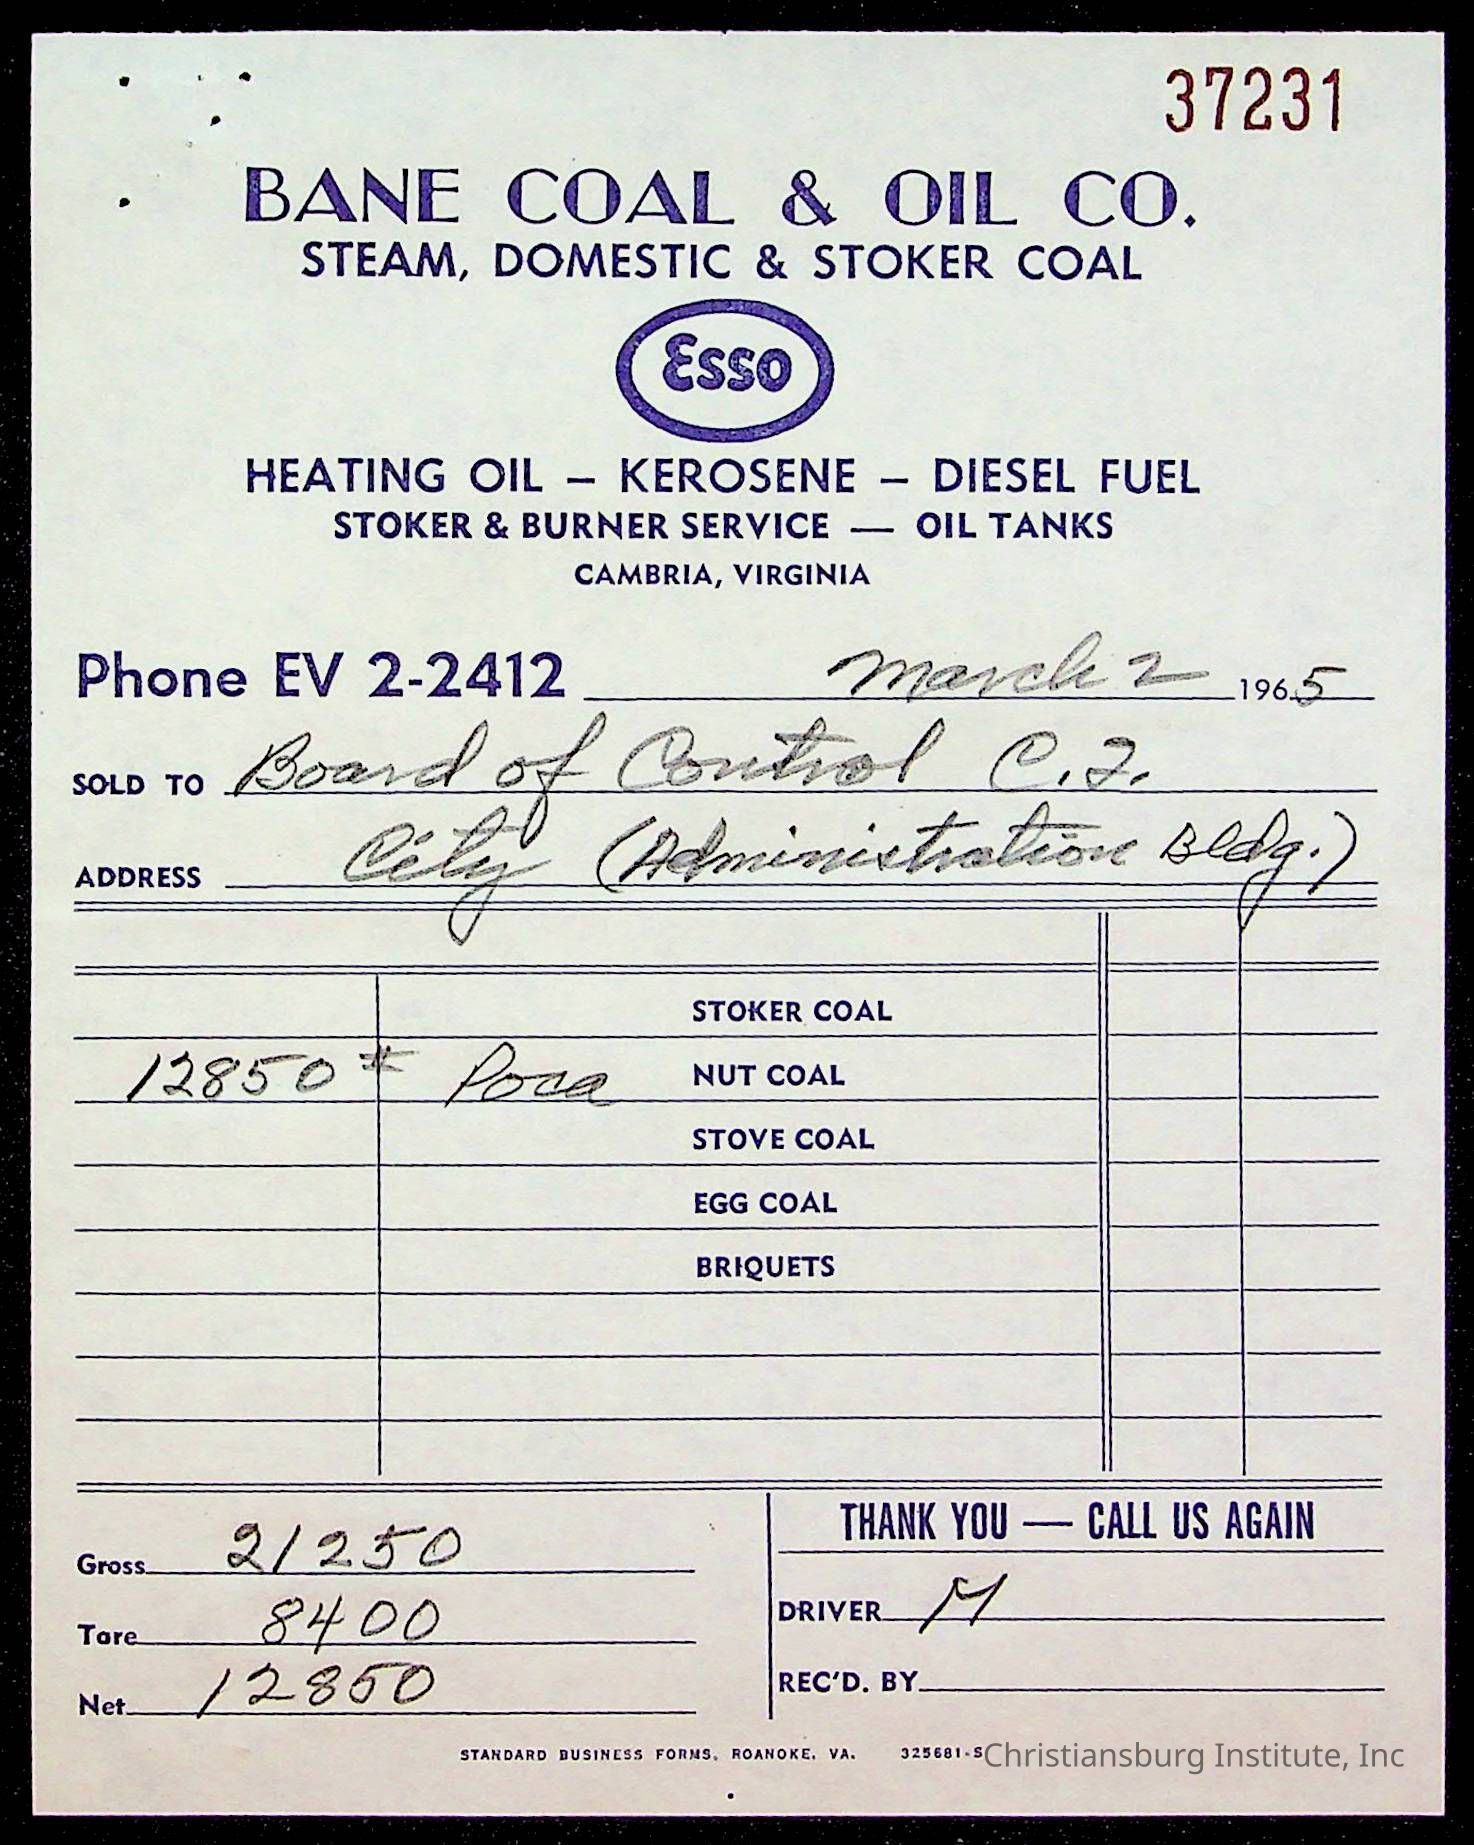 37231
BANE COAL & OIL CO.
STEAM, DOMESTIC & STOKER COAL
Esso
HEATING OIL – KEROSENE – DIESEL FUEL
STOKER & BURNER SERVICE — OIL TANKS
CAMBRIA, VIRGINIA
Phone EV 2-2412 March 2 1965
SOLD TO Board of Control C.I.
ADDRESS City (Administration Bldg.)
STOKER COAL
12850 # Poca NUT COAL
STOVE COAL
EGG COAL
BRIQUETS
Gross 21250
Tare 8400
Net 12850
THANK YOU — CALL US AGAIN
DRIVER M
REC'D. BY
STANDARD BUSINESS FORMS, ROANOKE, VA. 325681-S
Christiansburg Institute, Inc